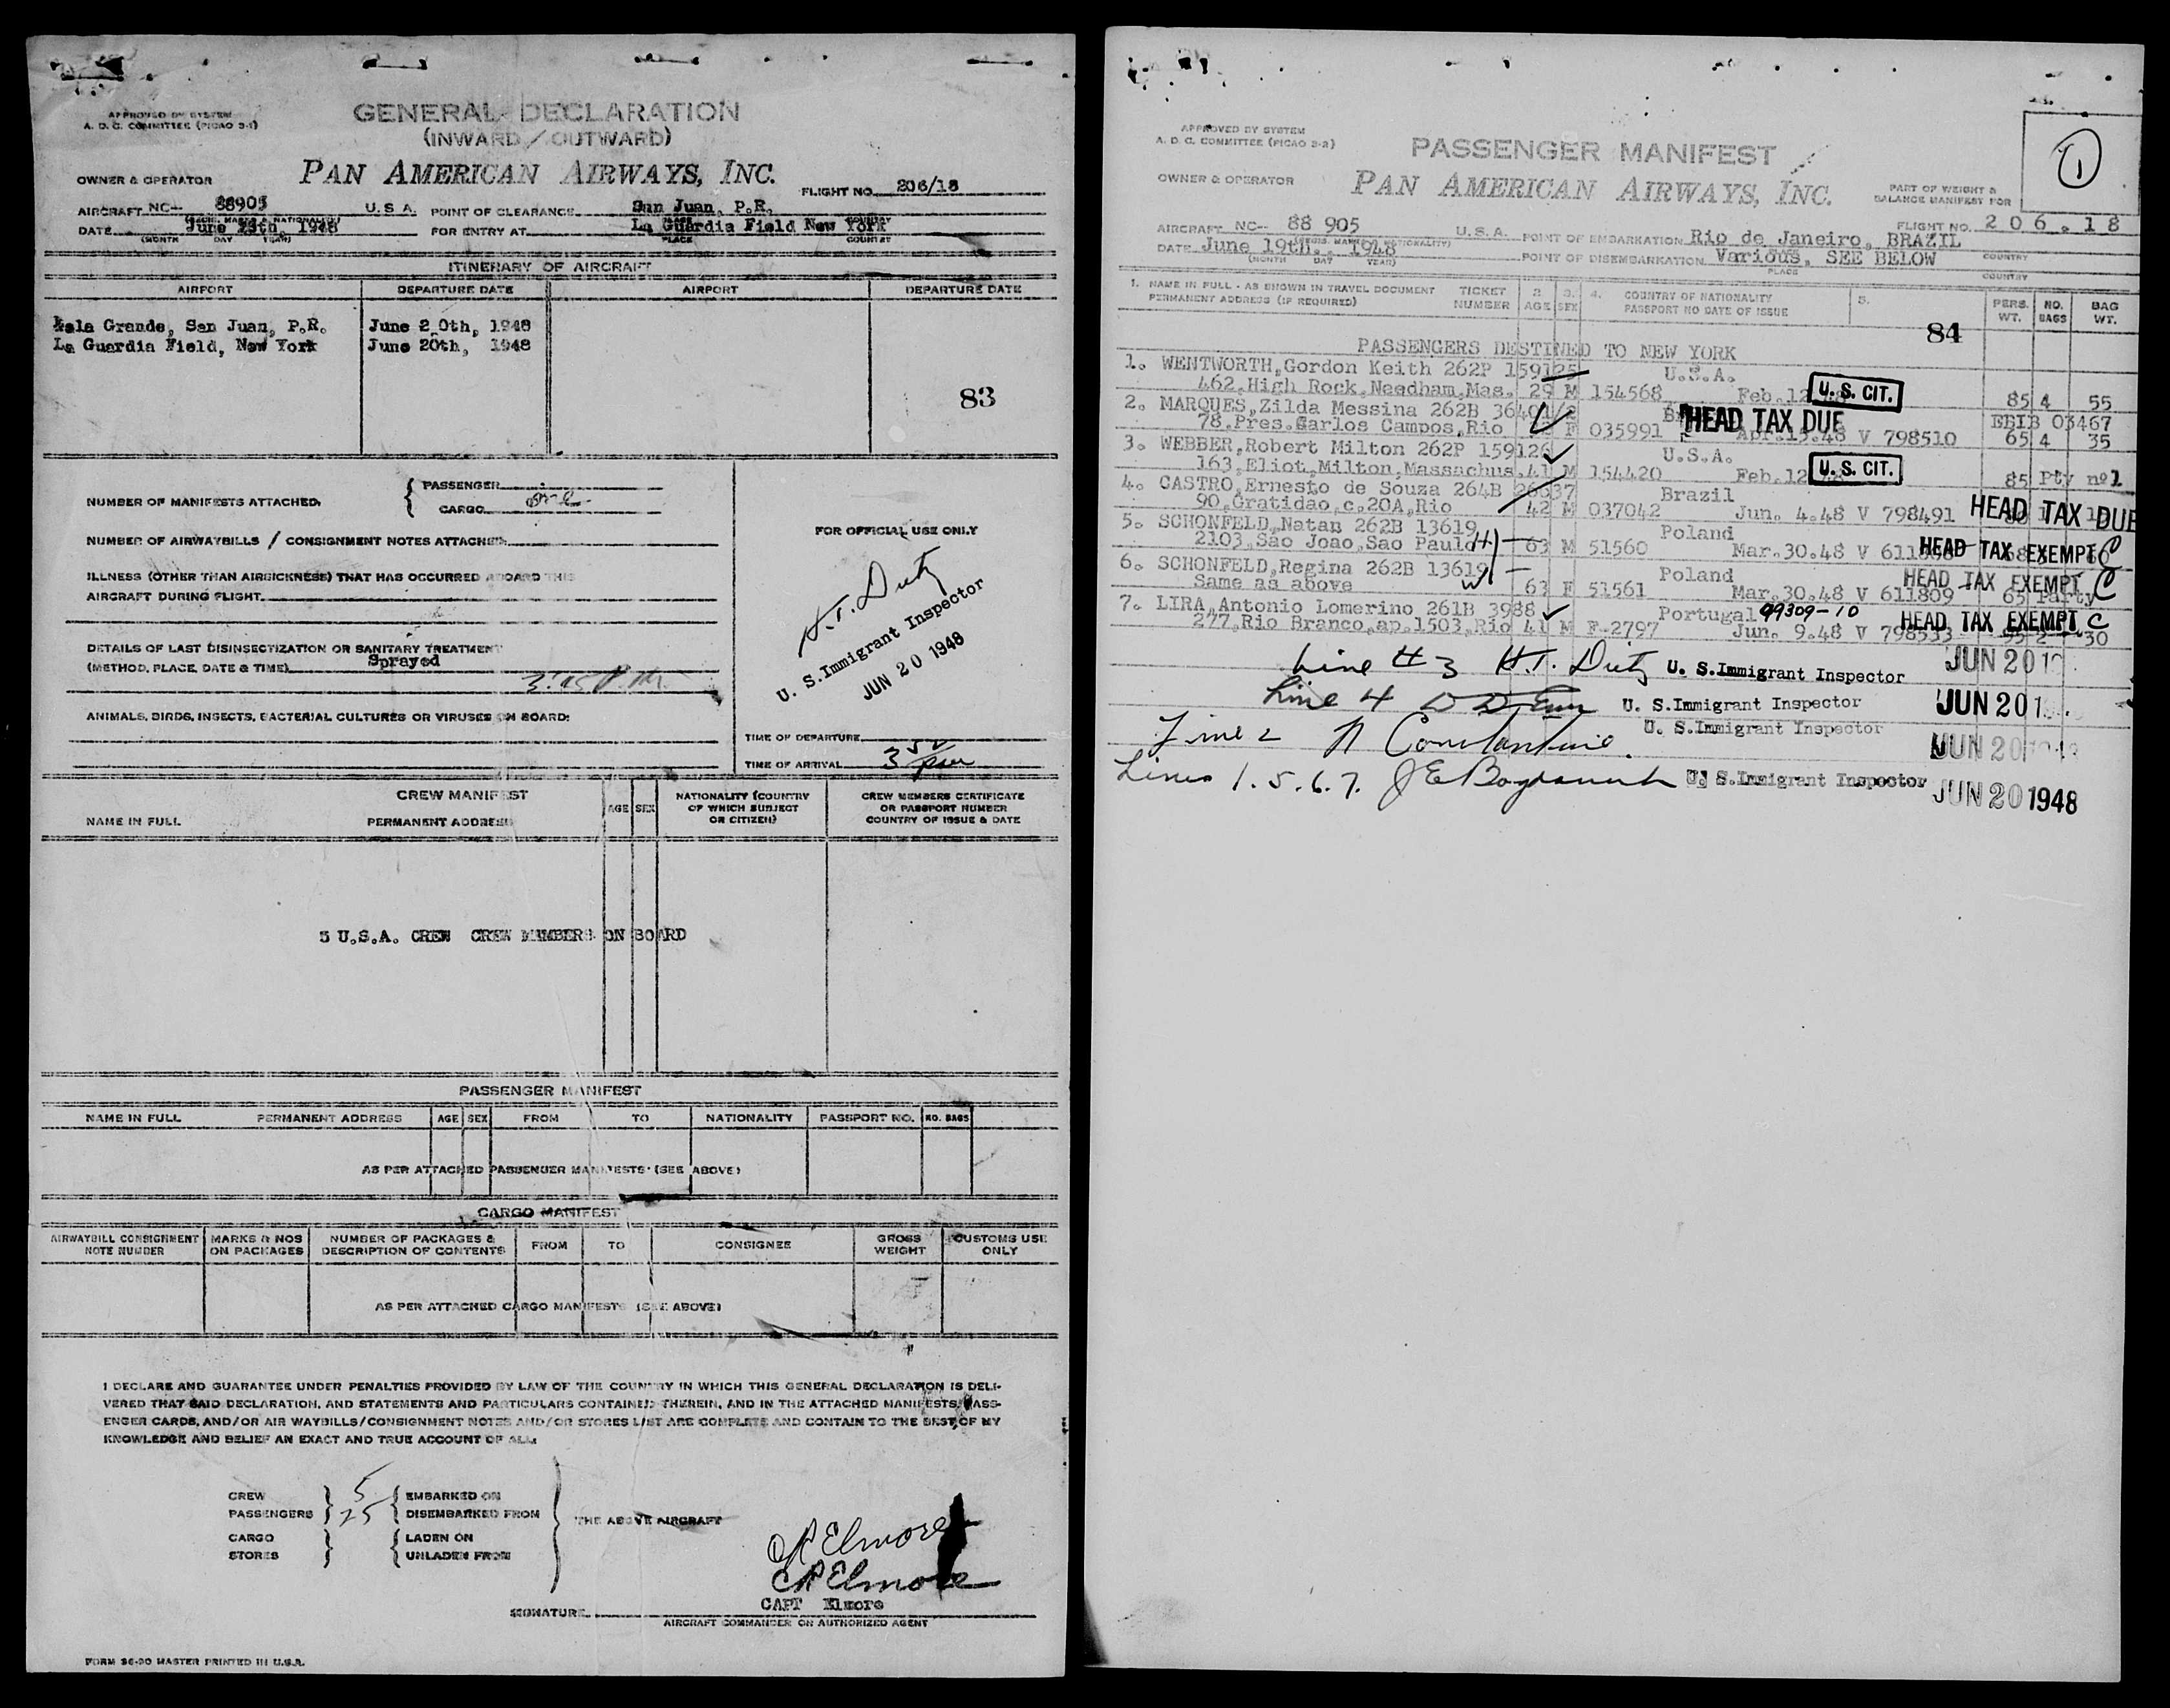 APPROVED BY SYSTEM
A. D. C. COMMITTEE (PICAO 3-1)
GENERAL DECLARATION
(INWARD / OUTWARD)
OWNER & OPERATOR
PAN AMERICAN AIRWAYS, INC.
FLIGHT NO. 206/18
AIRCRAFT NC- 88905 U.S.A. POINT OF CLEARANCE San Juan, P.R.
DATE June 1948 FOR ENTRY AT La Guardia Field New York
(MONTH DAY YEAR) PLACE COUNTRY
ITINERARY OF AIRCRAFT
AIRPORT DEPARTURE DATE AIRPORT DEPARTURE DATE
Isla Grande, San Juan, P.R. June 20th, 1948
La Guardia Field, New York June 20th, 1948
83
NUMBER OF MANIFESTS ATTACHED.
PASSENGER
CARGO one
NUMBER OF AIRWAYBILLS / CONSIGNMENT NOTES ATTACHED
ILLNESS (OTHER THAN AIRSICKNESS) THAT HAS OCCURRED ABOARD THIS
AIRCRAFT DURING FLIGHT
DETAILS OF LAST DISINSECTIZATION OR SANITARY TREATMENT
(METHOD, PLACE, DATE & TIME) Sprayed
ANIMALS, BIRDS, INSECTS, BACTERIAL CULTURES OR VIRUSES ON BOARD:
FOR OFFICIAL USE ONLY
H.T. Dietz
U. S. Immigrant Inspector
JUN 20 1948
TIME OF DEPARTURE
TIME OF ARRIVAL 3 52 pm
CREW MANIFEST
NAME IN FULL PERMANENT ADDRESS
AGE SEX
NATIONALITY (COUNTRY
OF WHICH SUBJECT
OR CITIZEN)
CREW MEMBERS CERTIFICATE
OR PASSPORT NUMBER
COUNTRY OF ISSUE & DATE
5 U.S.A. CREW CREW MEMBERS ON BOARD
PASSENGER MANIFEST
NAME IN FULL PERMANENT ADDRESS AGE SEX FROM TO NATIONALITY PASSPORT NO. NO. BAGS
AS PER ATTACHED PASSENGER MANIFESTS (SEE ABOVE)
CARGO MANIFEST
AIRWAYBILL CONSIGNMENT
NOTE NUMBER
MARKS & NOS
ON PACKAGES
NUMBER OF PACKAGES &
DESCRIPTION OF CONTENTS
FROM TO CONSIGNEE
GROSS
WEIGHT
CUSTOMS USE
ONLY
AS PER ATTACHED CARGO MANIFESTS (SEE ABOVE)
I DECLARE AND GUARANTEE UNDER PENALTIES PROVIDED BY LAW OF THE COUNTRY IN WHICH THIS GENERAL DECLARATION IS DELI-
VERED THAT SAID DECLARATION, AND STATEMENTS AND PARTICULARS CONTAINED THEREIN, AND IN THE ATTACHED MANIFESTS, PASS-
ENGER CARDS, AND/OR AIR WAYBILLS/CONSIGNMENT NOTES AND/OR STORES LIST ARE COMPLETE AND CONTAIN TO THE BEST OF MY
KNOWLEDGE AND BELIEF AN EXACT AND TRUE ACCOUNT OF ALL
CREW 5 EMBARKED ON
PASSENGERS 25 DISEMBARKED FROM
THE ABOVE AIRCRAFT
CARGO LADEN ON
STORES UNLADEN FROM
Elmore
Elmore
CAPT Elmore
SIGNATURE
AIRCRAFT COMMANDER OR AUTHORIZED AGENT
FORM 36-30 MASTER PRINTED IN U.S.A.
APPROVED BY SYSTEM
A. D. C. COMMITTEE (PICAO 3-2)
PASSENGER MANIFEST
1
OWNER & OPERATOR
PAN AMERICAN AIRWAYS, INC.
PART OF WEIGHT &
BALANCE MANIFEST FOR
FLIGHT NO. 206.18
AIRCRAFT NC- 88 905 U.S.A. POINT OF EMBARKATION Rio de Janeiro, BRAZIL
DATE June 19th. 1948 POINT OF DISEMBARKATION Various, SEE BELOW
(MONTH DAY YEAR) PLACE COUNTRY
1. NAME IN FULL - AS SHOWN IN TRAVEL DOCUMENT
PERMANENT ADDRESS (IF REQUIRED)
TICKET
NUMBER
2. AGE 3. SEX
4. COUNTRY OF NATIONALITY
PASSPORT NO DATE OF ISSUE
5.
PERS. WT. NO. BAGS BAG WT.
84
PASSENGERS DESTINED TO NEW YORK
1. WENTWORTH,Gordon Keith 262P 159125 U.S.A.
462,High Rock,Needham,Mas. 29 M 154568 Feb.12 U. S. CIT. 85 4 55
2. MARQUES,Zilda Messina 262B HEAD TAX DUE EBIB 03467
78,Pres.Carlos Campos,Rio F 035991 Apr.15.48 V 798510 65 4 35
3. WEBBER,Robert Milton 262P 159126 U.S.A.
163,Eliot,Milton,Massachus. 41 M 154420 Feb.12 U. S. CIT. 85 Pty nº1
4. CASTRO,Ernesto de Souza 264B Brazil
90,Gratidao,c.20A,Rio 42 M 037042 Jun. 4.48 V 798491 HEAD TAX DUE
5. SCHONFELD,Natan 262B 13619 Poland
2103,Sao Joao,Sao Paulo H 63 M 51560 Mar.30.48 V HEAD TAX EXEMPT C
6. SCHONFELD,Regina 262B 13619 Poland HEAD TAX EXEMPT C
Same as above W 63 F 51561 Mar.30.48 V 611809 65 Party
7. LIRA,Antonio Lomerino 261B 3988 Portugal 99309-10 HEAD TAX EXEMPT C
277,Rio Branco,ap.1503,Rio 41 M F-2797 Jun. 9.48 V 798533 30
Line # 3 H.T. Dietz U. S.Immigrant Inspector JUN 20
Line 4 U. S.Immigrant Inspector JUN 20
Line 2 N Constantine U. S.Immigrant Inspector JUN 20
Lines 1. 5. 6. 7. U. S.Immigrant Inspector JUN 20 1948